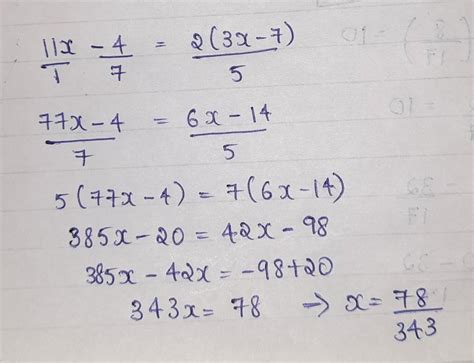 11x/1 - 4/7 = 2(3x-7)/5
77x-4/7 = 6x-14/5
5(77x-4) = 7(6x-14)
385x-20 = 42x-98
385x-42x = -98+20
343x = 78 ⇒ x = 78/343